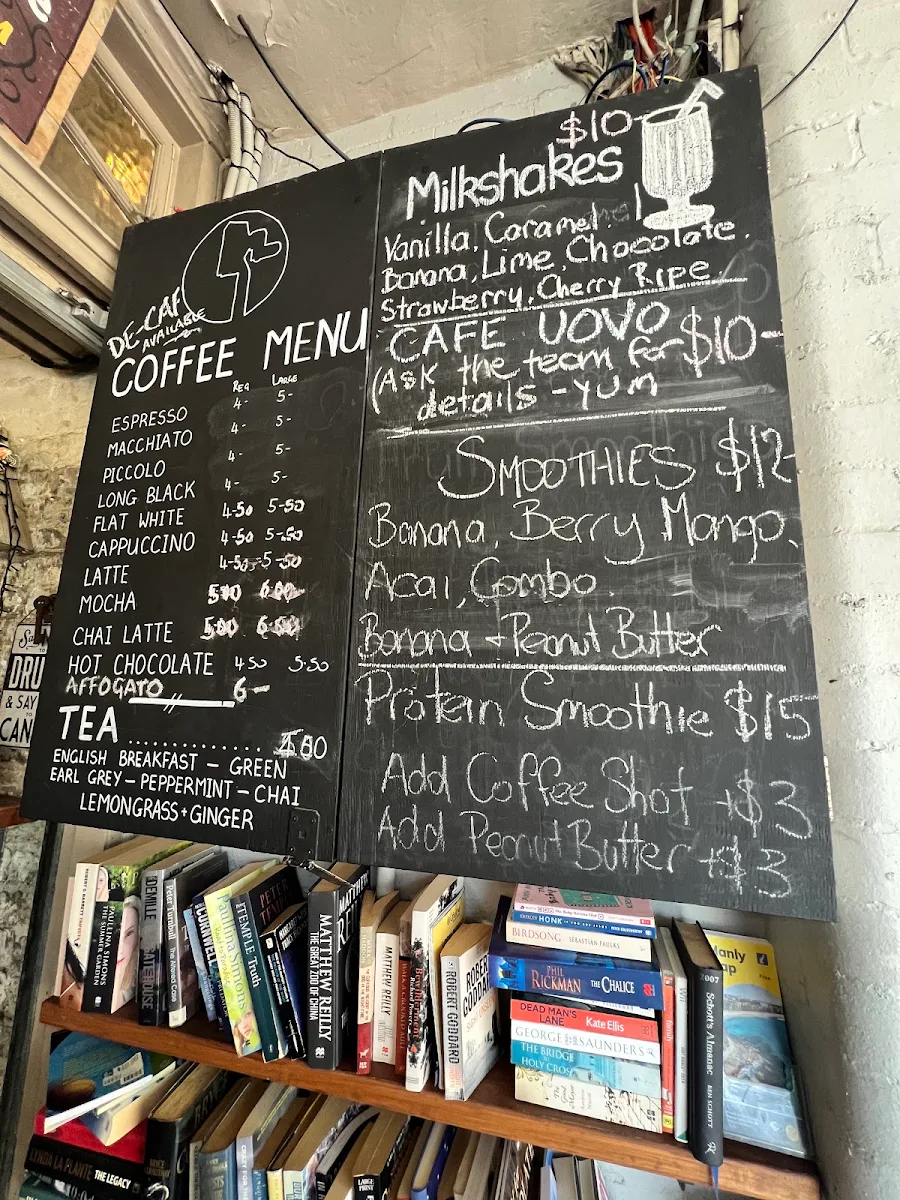 DE-CAF
AVAILABLE
COFFEE MENU
REG LARGE
ESPRESSO 4- 5-
MACCHIATO 4- 5-
PICCOLO 4- 5-
LONG BLACK 4- 5-
FLAT WHITE 4-50 5-50
CAPPUCCINO 4-50 5-50
LATTE 4-50 5-50
MOCHA
CHAI LATTE
HOT CHOCOLATE 4 50 5.50
AFFOGATO 6-
TEA
ENGLISH BREAKFAST — GREEN
EARL GREY — PEPPERMINT — CHAI
LEMONGRASS + GINGER
$10-
Milkshakes
Vanilla, Caramel.
Banana, Lime, Chocolate.
Strawberry, Cherry Ripe.
CAFE UOVO $10-
(Ask the team for
details - yum
SMOOTHIES $12-
Banana, Berry Mango,
Acai, Combo.
Banana + Peanut Butter
Protein Smoothie $15
Add Coffee Shot +$3
Add Peanut Butter +$3
DRU
& SAY
CAN
PAULLINA SIMONS
THE SUMMER GARDEN
DEMILLE
Peter Turnbull
CORNWELL
Paullina Simons
TEMPLE
Truth
PETER
MATTHEW REILLY
THE GREAT ZOO OF CHINA
MATTHEW REILLY
ROBERT GODDARD
HONK
BIRDSONG SEBASTIAN FAULKS
PHIL RICKMAN THE CHALICE
DEAD MAN'S LANE Kate Ellis
GEORGE SAUNDERS
THE BRIDGE
HOLY CROSS
2007 Schott's Almanac BEN SCHOTT
Manly
Map
Free
LYNDA LA PLANTE THE LEGACY
LARGE PRINT